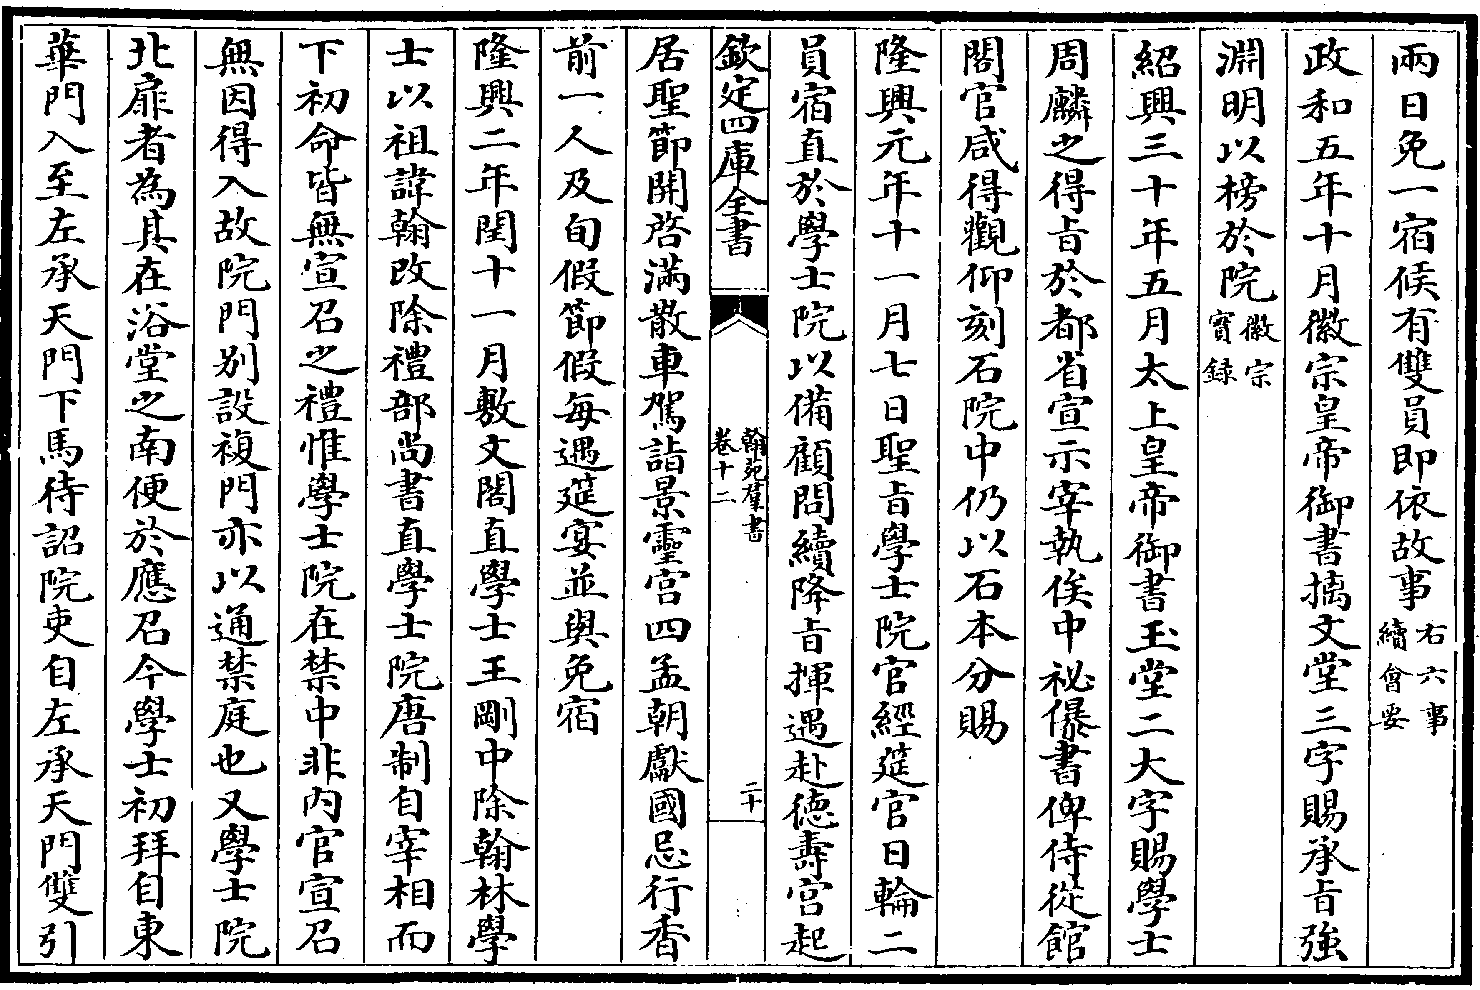 兩日免一宿候有雙員即依故事右六事續會要
政和五年十月徽宗皇帝御書摛文堂三字賜承旨強
淵明以榜於院徽宗實録
紹興三十年五月太上皇帝御書玉堂二大字賜學士
周麟之得旨於都省宣示宰執俟中祕㬥書俾侍從館
閣官咸得觀仰刻石院中仍以石本分賜
隆興元年十一月七日聖旨學士院官經筵官日輪二
員宿直於學士院以備顧問續降旨揮遇赴德壽宮起
欽定四庫全書
翰苑羣書
卷十二
二十
居聖節開啓滿散車駕詣景靈宮四孟朝獻國忌行香
前一人及旬假節假每遇筵宴並與免宿
隆興二年閏十一月敷文閣直學士王剛中除翰林學
士以祖諱翰改除禮部尚書直學士院唐制自宰相而
下初命皆無宣召之禮惟學士院在禁中非内官宣召
無因得入故院門别設複門亦以通禁庭也又學士院
北扉者為其在浴堂之南便於應召今學士初拜自東
華門入至左承天門下馬待詔院吏自左承天門雙引